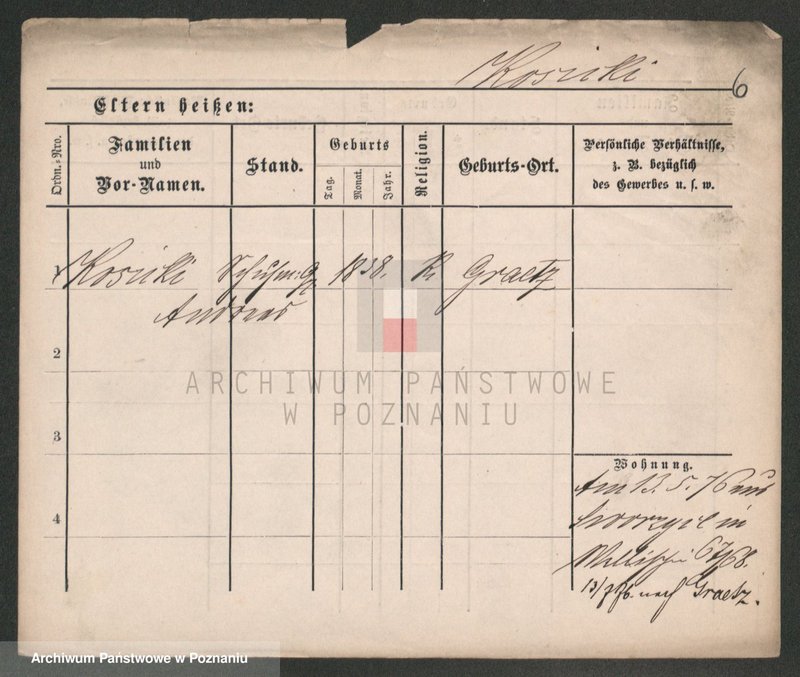 Kosicki
6
Eltern heißen:
Ordn.-Nro.
Familien
und
Vor-Namen.
Stand.
Geburts
Tag.
Monat.
Jahr.
Religion.
Geburts-Ort.
Persönliche Verhältnisse,
z. B. bezüglich
des Gewerbes u. s. w.
1 Kosicki Schuhm: 1838. K. Graetz
Andreas
2
3
4
ARCHIWUM PAŃSTWOWE
W POZNANIU
Wohnung.
Am 13. 5. 76 aus
in
Wallischei 67/68.
13/7 76. nach Graetz.
Archiwum Państwowe w Poznaniu